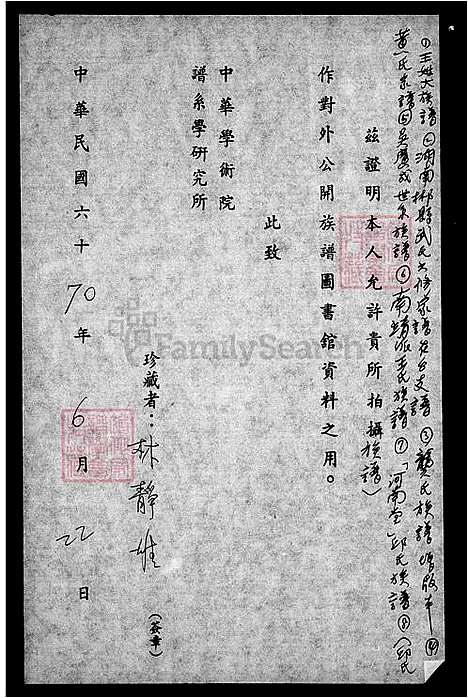 ①王姓大族譜②湖南郴縣武氏六修家譜③龔氏族譜增版本④
黃氏宗譜⑤吳慶成世系族譜⑥南靖派王氏族譜⑦「河南堂」邱氏族譜⑧邱氏
茲證明本人允許貴所拍攝族譜
作對外公開族譜圖書館資料之用。
此致
中華學術院
譜系學研究所
珍藏者：林靜雄（簽章）
中華民國六十70年6月22日
FamilySearch